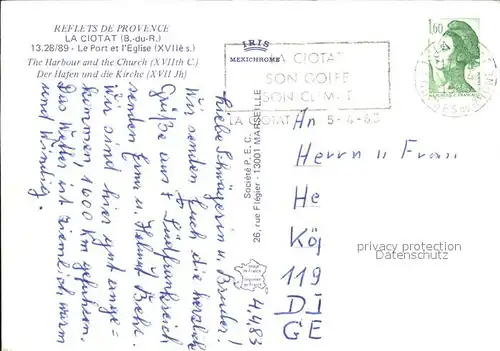 REFLETS DE PROVENCE
LA CIOTAT (B.-du-R.)
13.28/89 - Le Port et l'Eglise (XVIIè s.)
The Harbour and the Church (XVIIth C.)
Der Hafen und die Kirche (XVII Jh)
IRIS
MEXICHROME
LA CIOTAT
SON GOLFE
SON CLIMAT
LA CIOTAT
5-4-83
1,60
Société P.E.C.
26, rue Flégier - 13001 MARSEILLE
4.4.83
Liebe Schwägerin u. Bruder!
Wir senden Euch die herzlichsten
Grüße aus Südfrankreich
senden Erna u. Helmut
Wir sind hier gut ange=
kommen, 1600 km gefahren.
Das Wetter ist ziemlich warm
und windig.
An
Herrn u Frau
He
Kö
119
DI
GE
privacy protection
Datenschutz